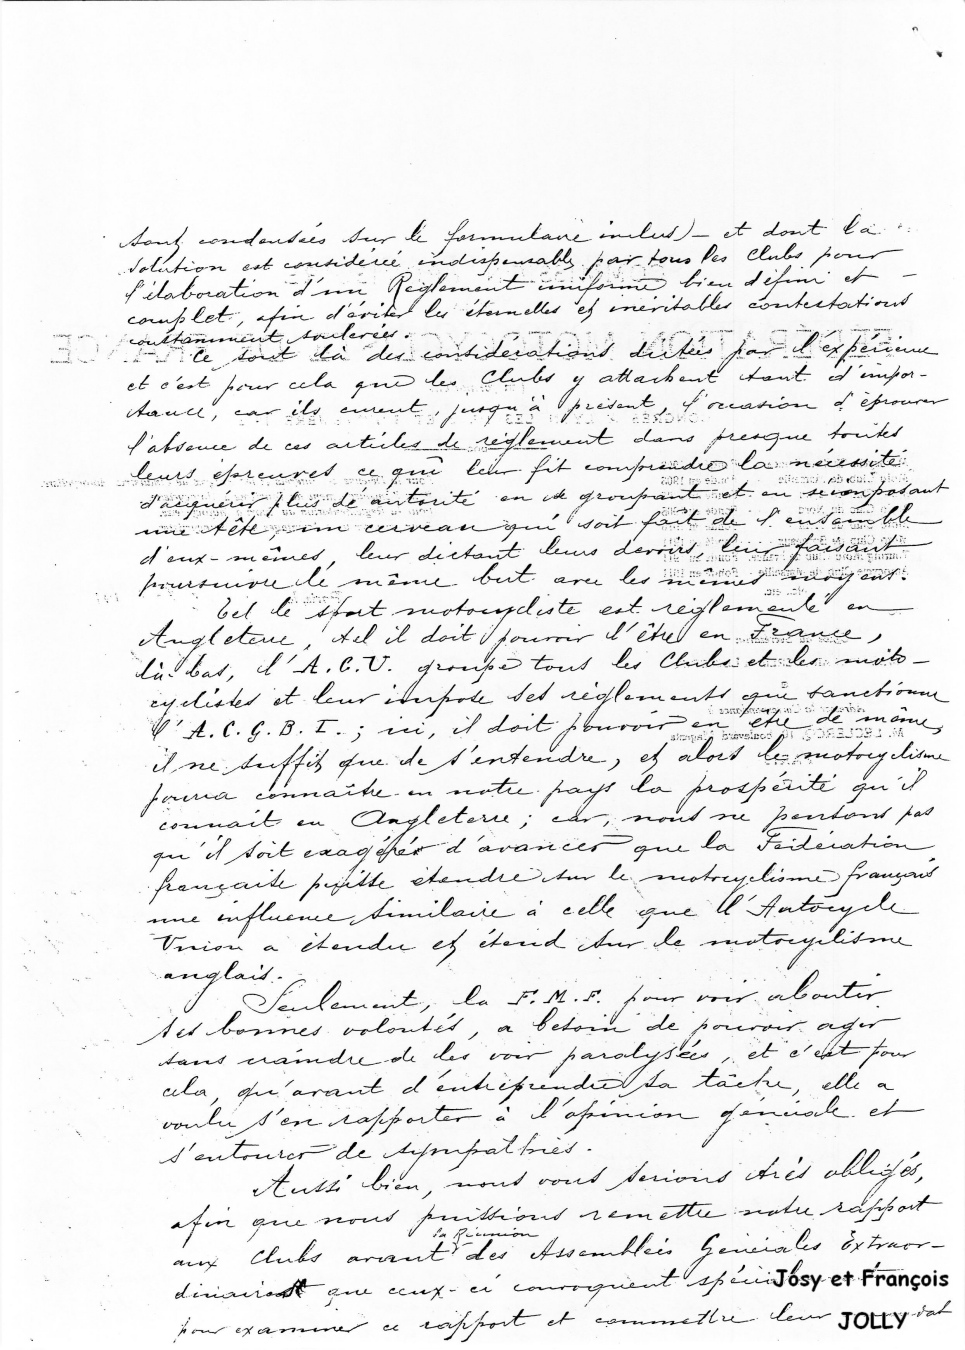 sont condensées sur le formulaire inclus) – et dont la
solution est considérée indispensable par tous les Clubs pour
l'élaboration d'un Règlement uniforme bien défini et –
complet, afin d'éviter les éternelles et inévitables contestations
constamment soulevées.
Ce sont là des considérations dictées par l'expérience
et c'est pour cela que les Clubs y attachent tant d'impor-
tance, car ils eurent, jusqu'à présent, l'occasion d'éprouver
l'absence de ces articles de règlement dans presque toutes
leurs épreuves ce qui leur fit comprendre la nécessité
d'acquérir plus de autorité en se groupant et en se composant
une tête, un cerveau qui soit fait de l'ensemble
d'eux-mêmes, leur dictant leurs devoirs, leur faisant
poursuivre le même but avec les mêmes moyens.
Tel le sport motocycliste est réglementé en
Angleterre, tel il doit pouvoir l'être en France,
là-bas, l'A.C.U. groupe tous les Clubs et les moto-
cyclistes et leur impose ses règlements que sanctionne
l'A.C.G.B.I. ; ici, il doit pouvoir en être de même,
il ne suffit que de s'entendre, et alors le motocyclisme
pourra connaître en notre pays la prospérité qu'il
connait en Angleterre ; car, nous ne pensons pas
qu'il soit exagéré d'avancer que la Fédération
française puisse étendre sur le motocyclisme français
une influence similaire à celle que l'Autocycle
Union a étendu et étend sur le motocyclisme
anglais.
Seulement, la F.M.F. pour voir aboutir
ses bonnes volontés, a besoin de pouvoir agir
sans craindre de les voir paralysées, et c'est pour
cela, qu'avant d'entreprendre sa tâche, elle a
voulu s'en rapporter à l'opinion générale et
s'entourer de sympathies.
Aussi bien, nous vous serions très obligés,
afin que nous puissions remettre notre rapport
la Réunion
aux Clubs avant des Assemblées Générales Extraor-
dinaires que ceux-ci convoquent Josy et François
pour examiner ce rapport et commettre leur JOLLY